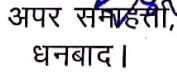 अपर समाहर्त्ता,
धनबाद।